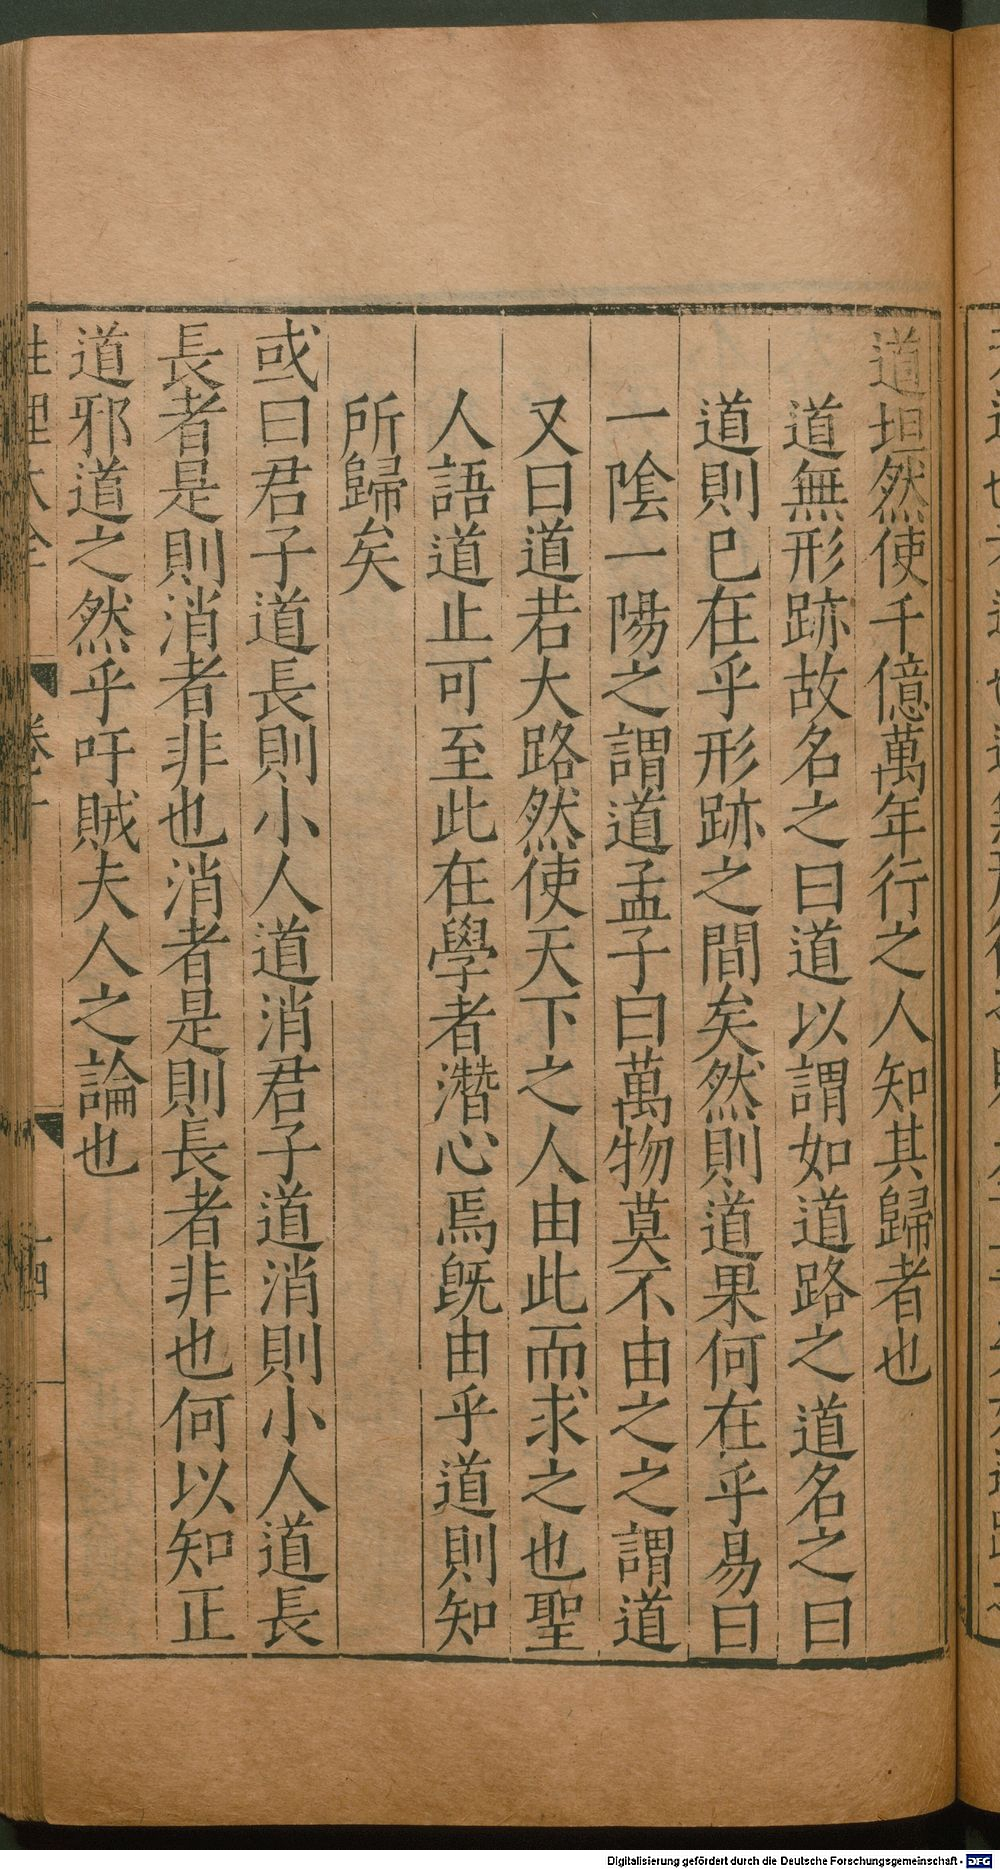 道坦然使千億萬年行之人知其歸者也
道無形跡故名之曰道以謂如道路之道名之曰
道則已在乎形跡之間矣然則道果何在乎易曰
一陰一陽之謂道孟子曰萬物莫不由之之謂道
又曰道若大路然使天下之人由此而求之也聖
人語道止可至此在學者潛心焉旣由乎道則知
所歸矣
或曰君子道長則小人道消君子道消則小人道長
長者是則消者非也消者是則長者非也何以知正
道邪道之然乎吁賊夫人之論也
性理大全
Digitalisierung gefördert durch die Deutsche Forschungsgemeinschaft - DFG